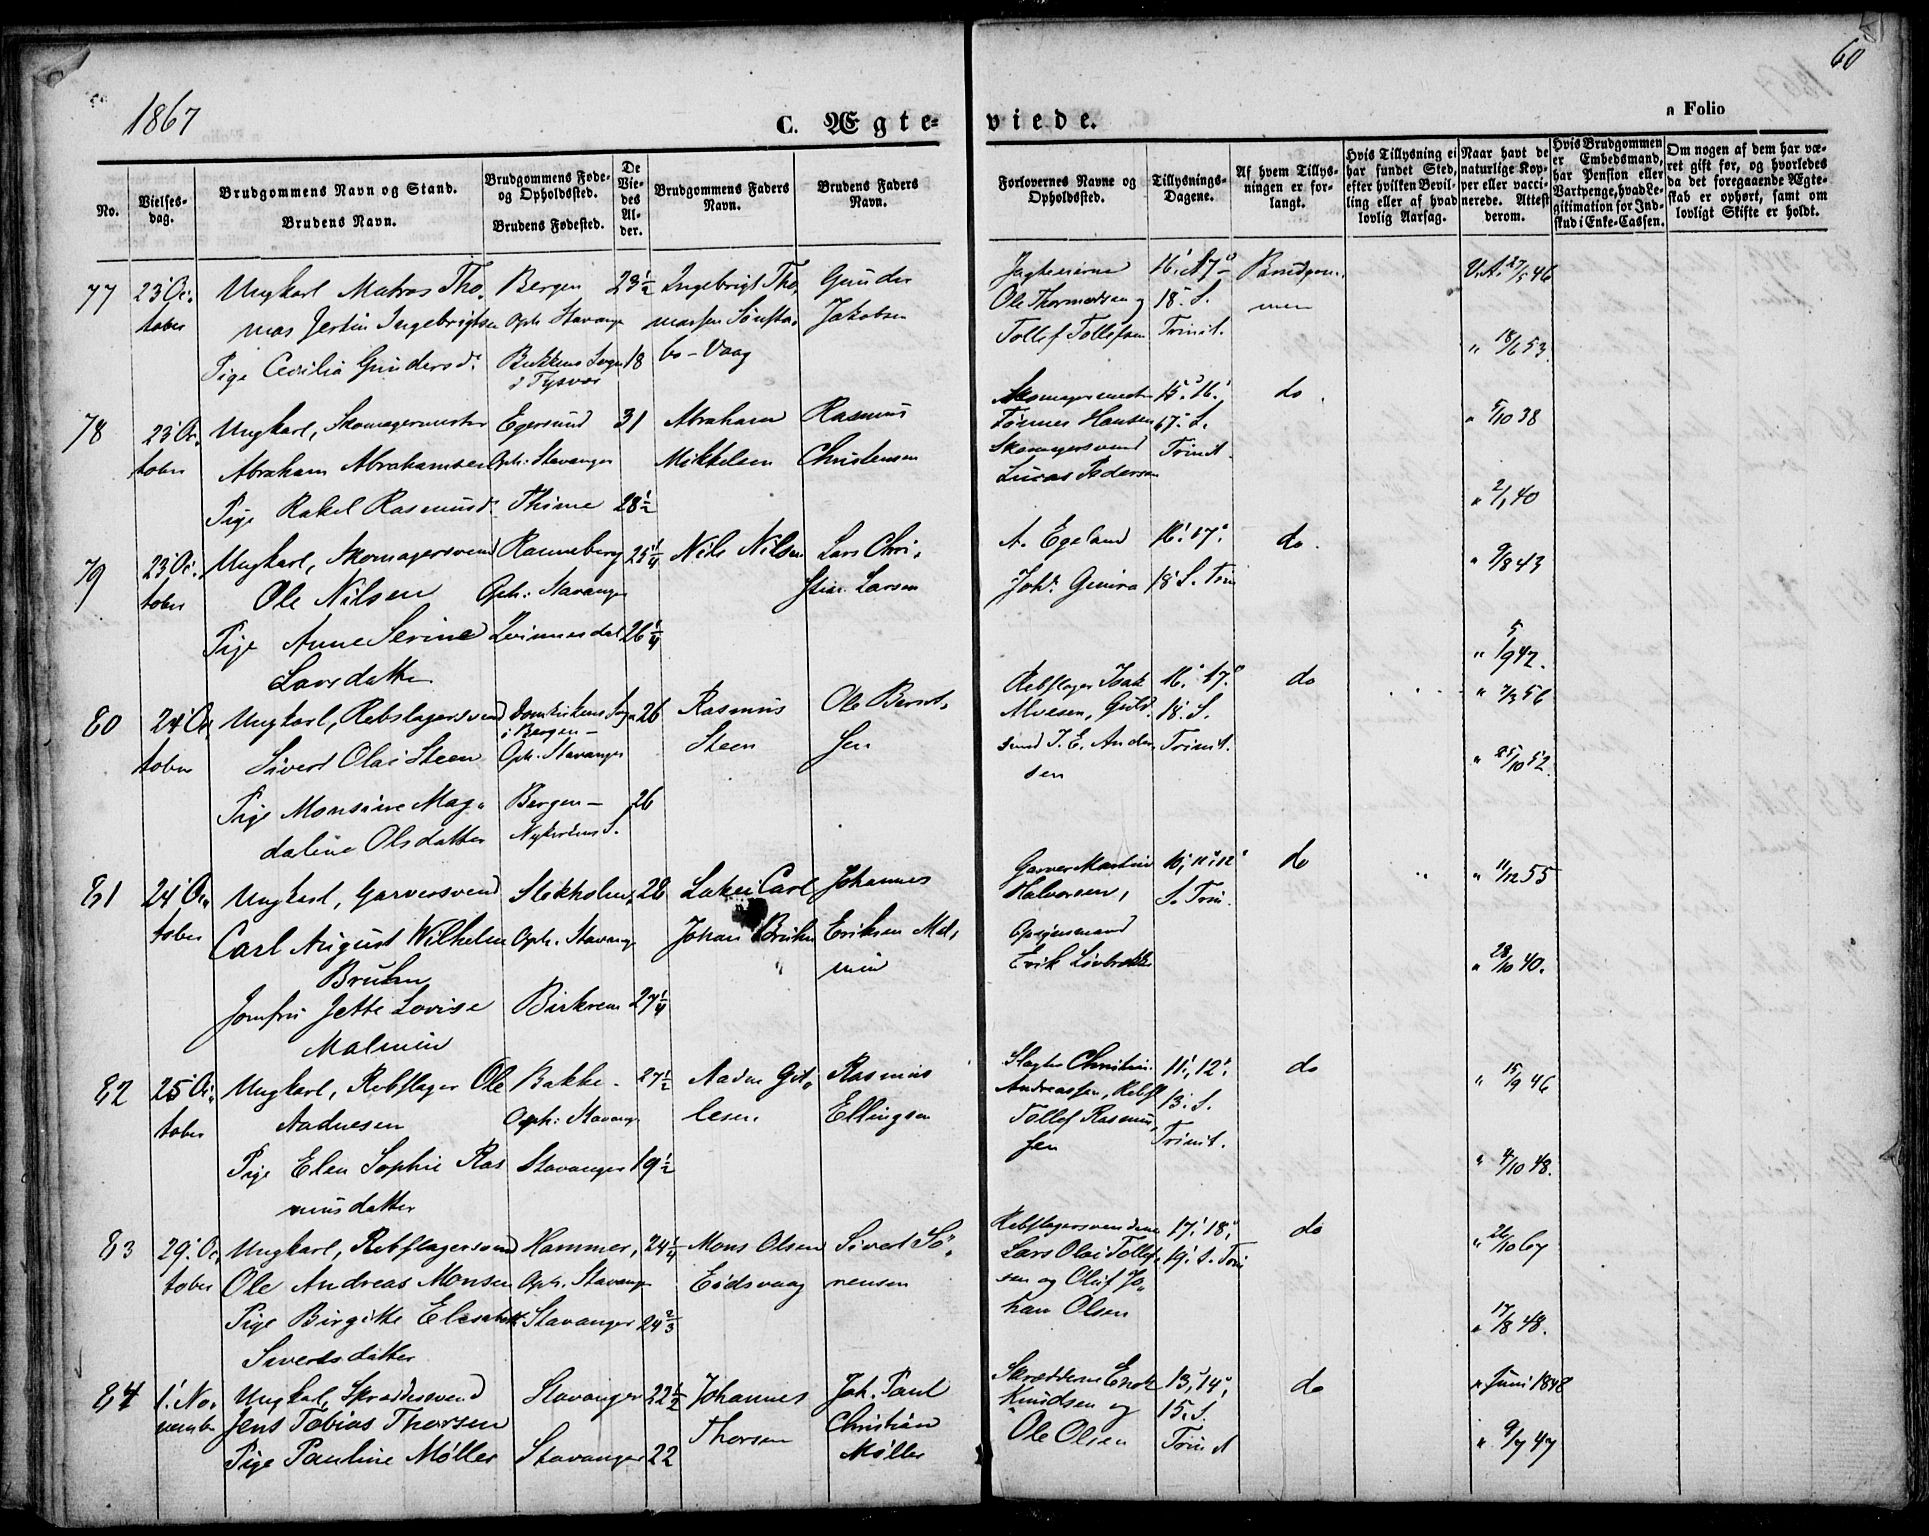 1867
60
C. Ægte-
viede.
a Folio
No.
Vielses-
dag.
Brudgommens Navn og Stand.
Brudens Navn.
Brudgommens Føde-
og Opholdssted.
Brudens Fødested.
De
Vie-
des
Al-
der.
Brudgommens Faders
Navn.
Brudens Faders
Navn.
Forlovernes Navne og
Opholdssted.
Tillysnings-
Dagene.
Af hvem Tillys-
ningen er for-
langt.
Hvis Tillysning ei
har fundet Sted,
efter hvilken Bevil-
ling eller af hvad
lovlig Aarsag.
Naar havt de
naturlige Kop-
per eller vacci-
nerede. Attest
derom.
Hvis Brudgommen
er Embedsmand,
har Pension eller
Vartpenge, hvad Le-
gitimation for Ind-
skud i Enke-Cassen.
Om nogen af dem har væ-
ret gift før, og hvorledes
da det foregaaende Ægte-
skab er ophørt, samt om
lovligt Skifte er holdt.
77
23' Oc,
tober
Ungkarl Matros Tho,
mas Jertin Ingebrigtsen
Pige Cecilia Gundersd.
Bergen
Oph. Stavanger
Bukkens Sogn
i Tysvær
23½
18
Ingebrigt Tho,
massen
bø - Vaag
Gunder
Jakobsen
Jagteierne
Ole Thormodsen og
Tollef Tollefsen
16' 17'
18' S.
Trinit.
Brudgom,
men
V.A. 27/5 46
" 18/6 53
78
23' Oc,
tober
Ungkarl, Skomagermester
Abraham Abrahamsen
Pige Rakel Rasmusd.
Egersund
Oph: Stavanger
Thime
31
28½
Abraham
Mikkelsen
Rasmus
Christensen
Skomagermester
Tønnes Hansen
Skomagersvend
Lucas Pedersen
15' 16'
17' S.
Trinit
do.
" 5/10 38
" 2/1 40
79
23' Oc,
tober
Ungkarl, Skomagersvend
Ole Nilsen
Pige Anne Serine
Larsdatter
Ranneberg
Oph: Stavanger
Qvinnesdal
25¼
26¼
Nils Nilsen
Lars Chri,
stian Larsen
A. Egeland
Joh:
16' 17'
18' S. Trin
do.
" 9/8 43
" 5/9 42.
80
24' Oc,
tober
Ungkarl, Rebslagersvend
Sivert Olai Steen
Pige Monsine Mag,
daline Olsdatter
Domkirkens Sogn
i Bergen -
Oph. Stavanger
Bergen -
Nykirkens S.
26
26
Rasmus
Steen
Ole Bernt,
sen
Rebslager Isak
Alvesen, Guld,
smed J. E. Ander
sen
16' 17'
18' S.
Trinit.
do
" 7/3 56
" 25/10 52.
81
24' Oc,
tober
Ungkarl, Garversvend
Carl August Wilhelm
Bruhn
Jomfru Jette Lovise
Malmin
Stokholm,
Oph. Stavanger
Birkrem
28
27¼
Lakei Carl
Johan Bruhn
Johannes
Eriksen Mal,
min
Garver Martin
Halvorsen,
Opsynsmand
Erik
10', 11' 12'
S. Trin.
do
" 11/12 55
" 28/10 40.
82
25' Oc,
tober
Ungkarl, Rebslager Ole
Aadnesen
Pige Elen Sophie Ras
musdatter
Bakke -
Oph: Stavanger
Stavanger
27½
19½
Aadne Git,
lesen.
Rasmus
Ellingsen
Slagter Christian
Andreassen, Rebsl
Tollef Rasmus,
sen
11', 12'
13' S.
Trinit.
do
" 15/9 46
" 4/10 48.
83
29' Oc,
tober
Ungkarl, Rebslagersvend
Ole Andreas Monsen
Pige Birgitte Elisabeth
Sivertsdatter
Hammer,
Oph. Stavanger
Stavanger
24¼
24⅔
Mons Olsen
Eidsvaag
Sivert Sø,
rensen
Rebslagersvendene
Lars Olai Tollef,
sen og Oluf Jo,
han Olsen
17' 18',
19' S. Trin
do
" 26/10 67
" 17/8 48.
84
1' No,
vember
Ungkal, Skræddersvend
Jens Tobias Thorsen
Pige Pauline Møller
Stavanger
Stavanger
22½
22
Johannes
Thorsen
Joh. Paul
Christian
Møller
Skrædderne Enok
Knudsen og
Ole Olsen
13, 14',
15, S.
Trinit
do
" Juni 1848
" 9/7 47